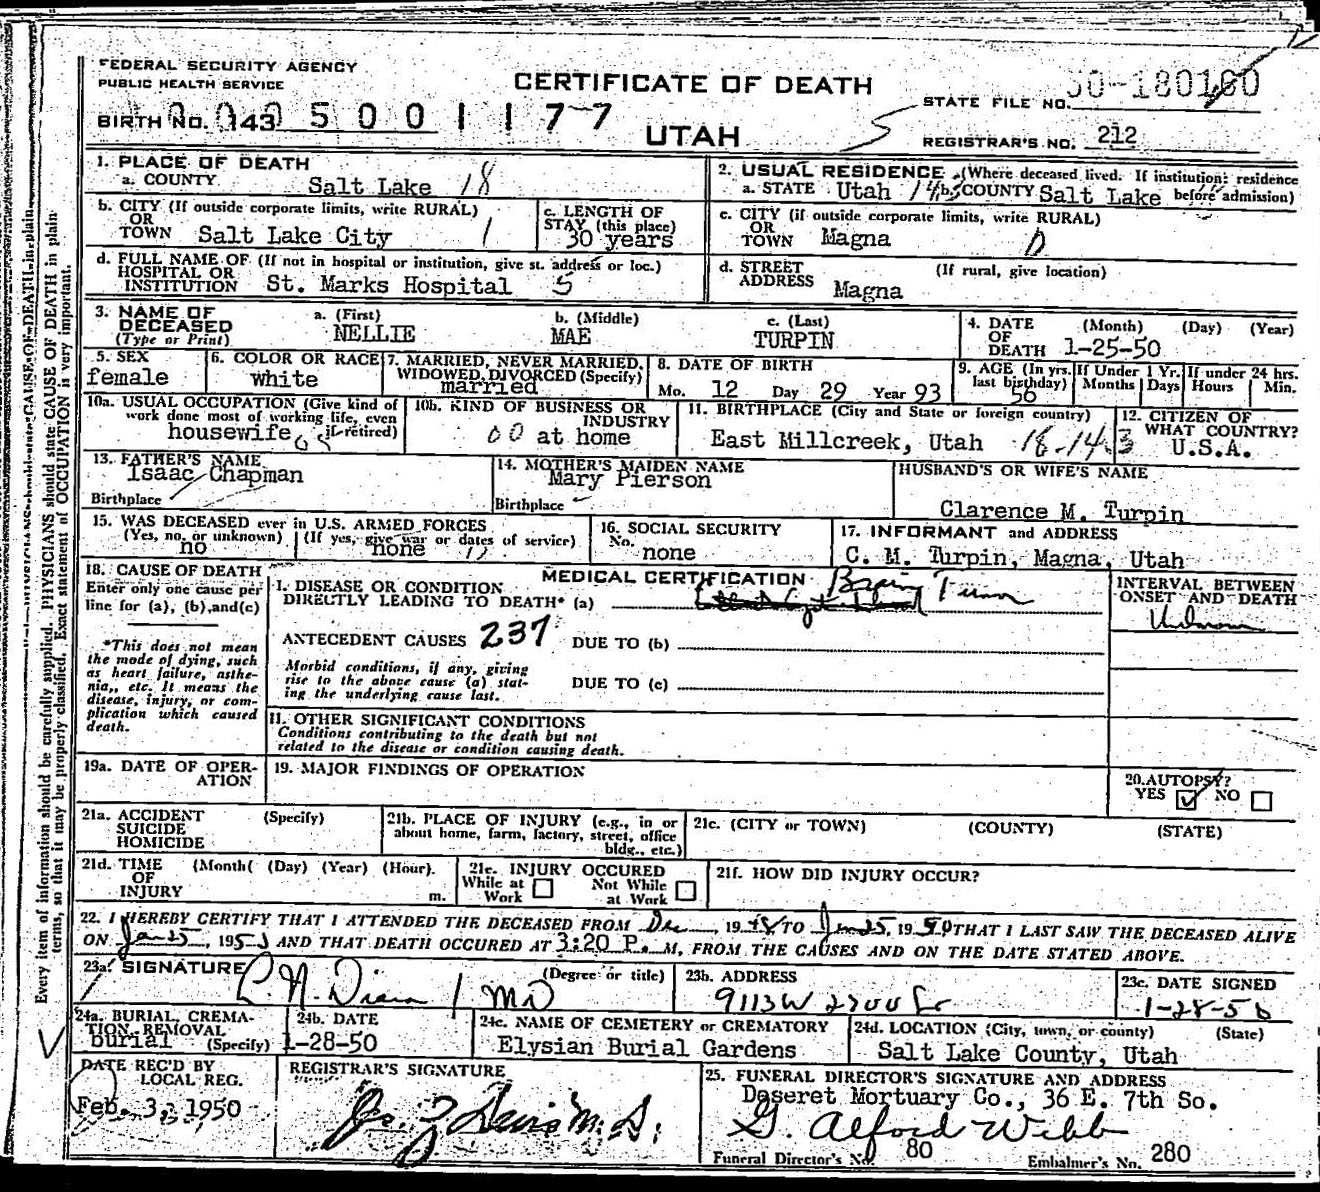 FEDERAL SECURITY AGENCY
PUBLIC HEALTH SERVICE
CERTIFICATE OF DEATH
STATE FILE NO. 50-180160
BIRTH NO. 143 5001177
UTAH
REGISTRAR'S NO. 212
1. PLACE OF DEATH
a. COUNTY Salt Lake 18
2. USUAL RESIDENCE (Where deceased lived. If institution: residence before admission)
a. STATE Utah 143 b. COUNTY Salt Lake
b. CITY (If outside corporate limits, write RURAL)
OR TOWN Salt Lake City 1
c. LENGTH OF STAY (this place) 30 years
c. CITY (if outside corporate limits, write RURAL)
OR TOWN Magna D
d. FULL NAME OF (If not in hospital or institution, give st. address or loc.)
HOSPITAL OR INSTITUTION St. Marks Hospital 5
d. STREET ADDRESS (If rural, give location)
Magna
3. NAME OF DECEASED (Type or Print)
a. (First) NELLIE
b. (Middle) MAE
c. (Last) TURPIN
4. DATE OF DEATH (Month) (Day) (Year)
1-25-50
5. SEX female
6. COLOR OR RACE white
7. MARRIED, NEVER MARRIED, WIDOWED, DIVORCED (Specify) married
8. DATE OF BIRTH
Mo. 12 Day 29 Year 93
9. AGE (In yrs. last birthday) 56
If Under 1 Yr. Months Days
If under 24 hrs. Hours Min.
10a. USUAL OCCUPATION (Give kind of work done most of working life, even if retired) housewife
10b. KIND OF BUSINESS OR INDUSTRY
00 at home
11. BIRTHPLACE (City and State or foreign country)
East Millcreek, Utah 18-143
12. CITIZEN OF WHAT COUNTRY? U.S.A.
13. FATHER'S NAME
Isaac Chapman
Birthplace
14. MOTHER'S MAIDEN NAME
Mary Pierson
Birthplace
HUSBAND'S OR WIFE'S NAME
Clarence M. Turpin
15. WAS DECEASED ever in U.S. ARMED FORCES
(Yes, no, or unknown) no
(If yes, give war or dates of service) none
16. SOCIAL SECURITY No. none
17. INFORMANT and ADDRESS
C. M. Turpin, Magna, Utah
18. CAUSE OF DEATH
Enter only one cause per line for (a), (b), and (c)
*This does not mean the mode of dying, such as heart failure, asthenia,, etc. It means the disease, injury, or complication which caused death.
MEDICAL CERTIFICATION
I. DISEASE OR CONDITION DIRECTLY LEADING TO DEATH* (a) Brain Tumor
INTERVAL BETWEEN ONSET AND DEATH
Unknown
ANTECEDENT CAUSES 237
DUE TO (b)
Morbid conditions, if any, giving rise to the above cause (a) stating the underlying cause last.
DUE TO (c)
II. OTHER SIGNIFICANT CONDITIONS
Conditions contributing to the death but not related to the disease or condition causing death.
19a. DATE OF OPERATION
19. MAJOR FINDINGS OF OPERATION
20. AUTOPSY?
YES NO
21a. ACCIDENT SUICIDE HOMICIDE (Specify)
21b. PLACE OF INJURY (e.g., in or about home, farm, factory, street, office bldg., etc.)
21c. (CITY or TOWN) (COUNTY) (STATE)
21d. TIME OF INJURY (Month( (Day) (Year) (Hour). m.
21e. INJURY OCCURED
While at Work Not While at Work
21f. HOW DID INJURY OCCUR?
22. I HEREBY CERTIFY THAT I ATTENDED THE DECEASED FROM Dec, 1948 TO Jan 25, 1950 THAT I LAST SAW THE DECEASED ALIVE
ON Jan 25, 1950 AND THAT DEATH OCCURED AT 3:20 P. M, FROM THE CAUSES AND ON THE DATE STATED ABOVE.
23a. SIGNATURE (Degree or title)
MD
23b. ADDRESS
9113 W 2700 So
23c. DATE SIGNED
1-28-50
24a. BURIAL, CREMATION, REMOVAL (Specify) burial
24b. DATE
1-28-50
24c. NAME OF CEMETERY or CREMATORY
Elysian Burial Gardens
24d. LOCATION (City, town, or county) (State)
Salt Lake County, Utah
DATE REC'D BY LOCAL REG.
Feb. 3, 1950
REGISTRAR'S SIGNATURE
25. FUNERAL DIRECTOR'S SIGNATURE AND ADDRESS
Deseret Mortuary Co., 36 E. 7th So.
G. Alford Webb
Funeral Director's No. 80 Embalmer's No. 280
Every item of information should be carefully supplied. PHYSICIANS should state CAUSE OF DEATH in plain
terms, so that it may be properly classified. Exact statement of OCCUPATION is very important.